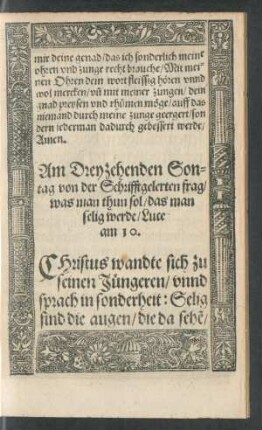 mir deine genad/das ich sonderlich meine
ohren vnd zunge recht brauche/Mit mei-
nen Ohren dein wort fleissig hören vnnd
wol mercken/vñ mit meiner zungen/dein
gnad preysen vnd rhümen möge/auff das
niemand durch meine zunge geergert/son
dern iederman dadurch gebessert werde/
Amen.
Am Dreyzehenden Son-
tag von der Schrifftgelerten frag/
was man thun sol/das man
selig werde/Luce
am 10.
CHristus wandte sich zu
seinen Jüngeren/vnnd
sprach in sonderheit: Selig
sind die augen/die da sehē/